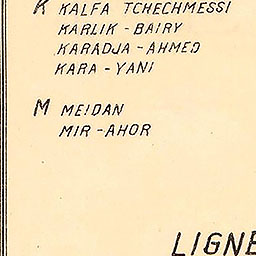 K KALFA TCHECHMESSI
KARLIK - BAIRY
KARADJA - AHMED
KARA - YANI
M MEIDAN
MIR - AHOR
LIGNE